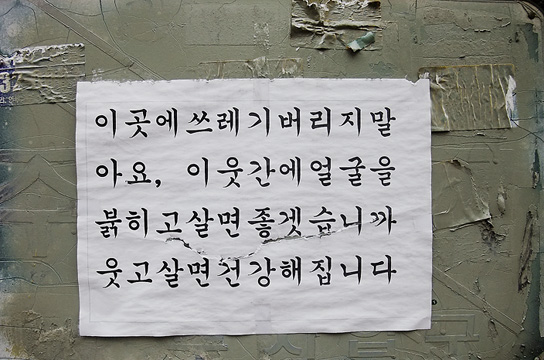 이곳에쓰레기버리지말
아요, 이웃간에얼굴을
붉히고살면좋겠습니까
웃고살면건강해집니다